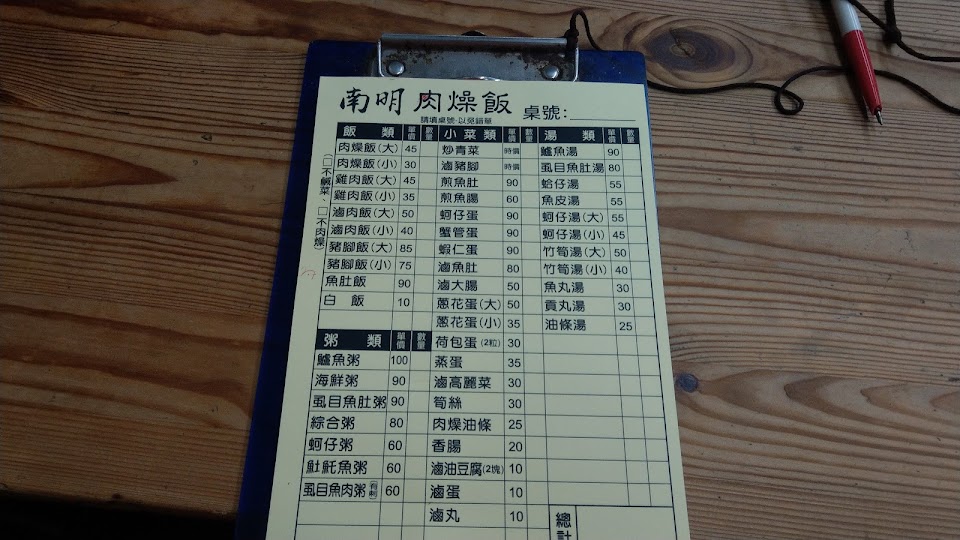 南明 肉燥飯 桌號:
請填桌號-以免錯單
(□不鹹菜、□不肉燥)
飯 類 單價 數量
肉燥飯(大) 45
肉燥飯(小) 30
雞肉飯(大) 45
雞肉飯(小) 35
滷肉飯(大) 50
滷肉飯(小) 40
豬腳飯(大) 85
豬腳飯(小) 75
魚肚飯 90
白 飯 10
粥 類 單價 數量
鱸魚粥 100
海鮮粥 90
虱目魚肚粥 90
綜合粥 80
蚵仔粥 60
𩵚魠魚粥 60
虱目魚肉粥(有刺) 60
小菜類 單價 數量
炒青菜 時價
滷豬腳 時價
煎魚肚 90
煎魚腸 60
蚵仔蛋 90
蟹管蛋 90
蝦仁蛋 90
滷魚肚 80
滷大腸 50
蔥花蛋(大) 50
蔥花蛋(小) 35
荷包蛋(2粒) 30
蒸蛋 35
滷高麗菜 30
筍絲 30
肉燥油條 25
香腸 20
滷油豆腐(2塊) 10
滷蛋 10
滷丸 10
湯 類 單價 數量
鱸魚湯 90
虱目魚肚湯 80
蛤仔湯 55
魚皮湯 55
蚵仔湯(大) 55
蚵仔湯(小) 45
竹筍湯(大) 50
竹筍湯(小) 40
魚丸湯 30
貢丸湯 30
油條湯 25
總計